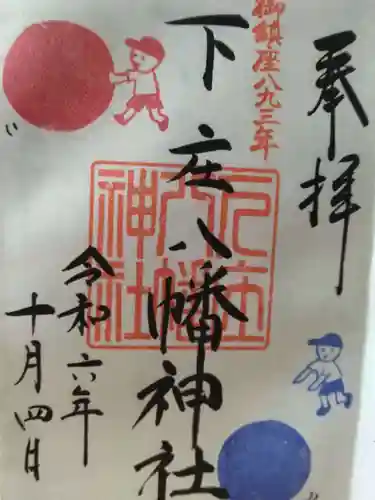 奉拝
御鎮座八九三年
下庄八幡神社
下庄八幡神社
令和六年
十月四日